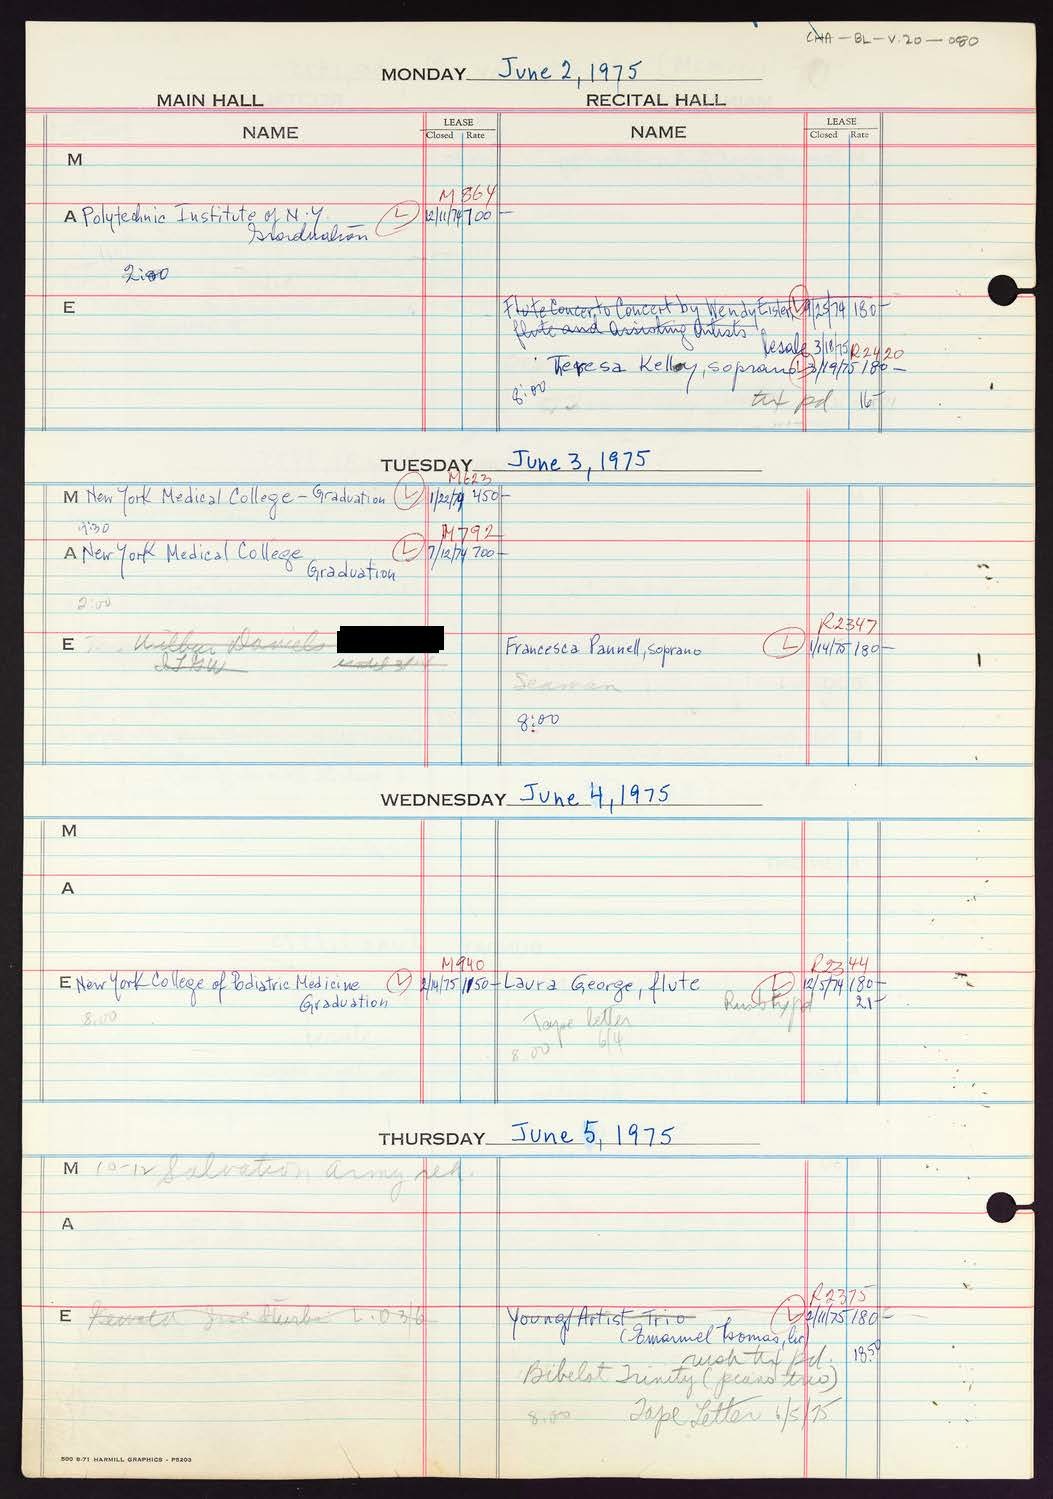 CHA-BL-V.20-080
MONDAY June 2, 1975
MAIN HALL RECITAL HALL
NAME LEASE Closed Rate NAME LEASE Closed Rate
M
M864
A Polytechnic Institute of N.Y. L 12/11/74 700 —
Graduation
2:00
E Flute Concerto Concert by Wendy Eisler L 9/25/74 180-
flute and Assisting Artists
Resale 3/18/75 R2420
Teresa Kelley, soprano L 3/19/75 180 —
8:00
txt pd 16-
TUESDAY June 3, 1975
M623
M New York Medical College - Graduation L 1/22/74 450-
9:30
M792
A New York Medical College L 7/12/74 700-
Graduation
2:00
R2347
E Wilbur Daniels
Francesca Pannell, soprano L 1/14/75 180-
ILGW
Seaman
8:00
WEDNESDAY June 4, 1975
M
A
M940 R2344
E New York College of Podiatric Medicine L 2/14/75 1150- Laura George, flute L 12/5/74 180-
Graduation
pd 21-
8:00
Tape letter
8:00 6/4
THURSDAY June 5, 1975
M 10-12 Salvation Army reh.
A
R2375
E L.O 3/6 Young Artist Trio L 2/11/75 180-
rush txt pd. 18.50
Bibelot Trinity (piano trio)
8:00 Tape Letter 6/5/75
500 8-71 HARMILL GRAPHICS - P5203